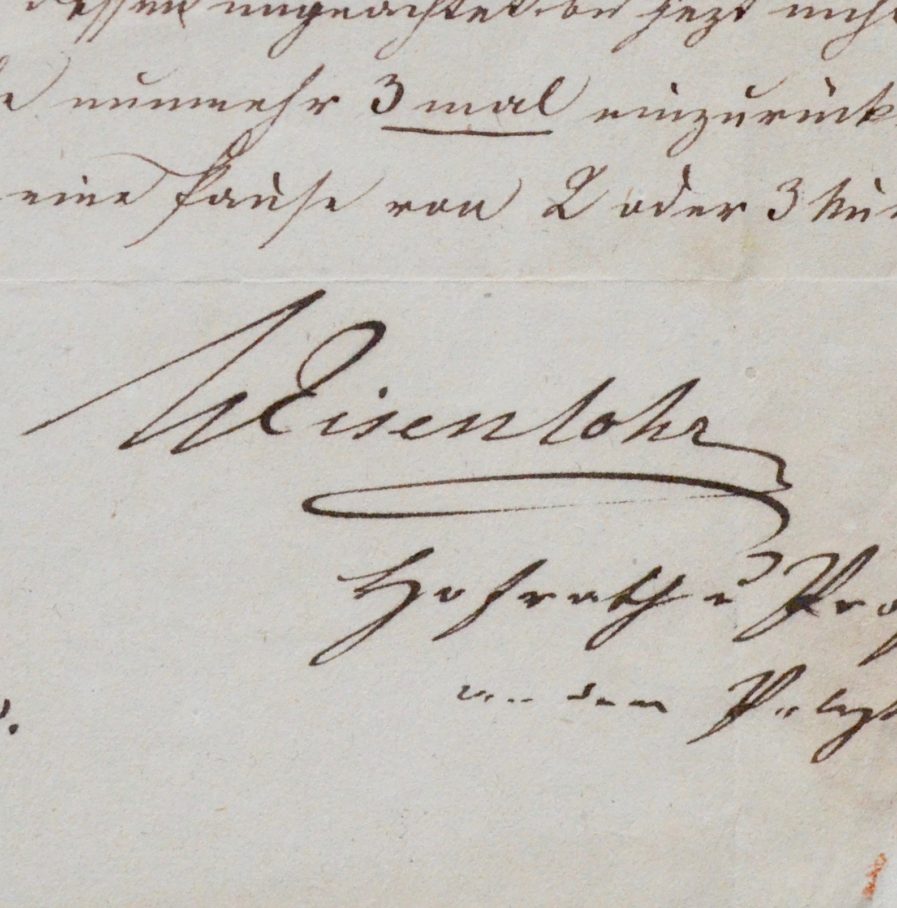 dessen ungeachtet bis jezt nicht
nunmehr 3 mal einzurück
eine Pause von 2 oder 3 Nu
W Eisenlohr
Hofrath u Pro
an dem Polyt